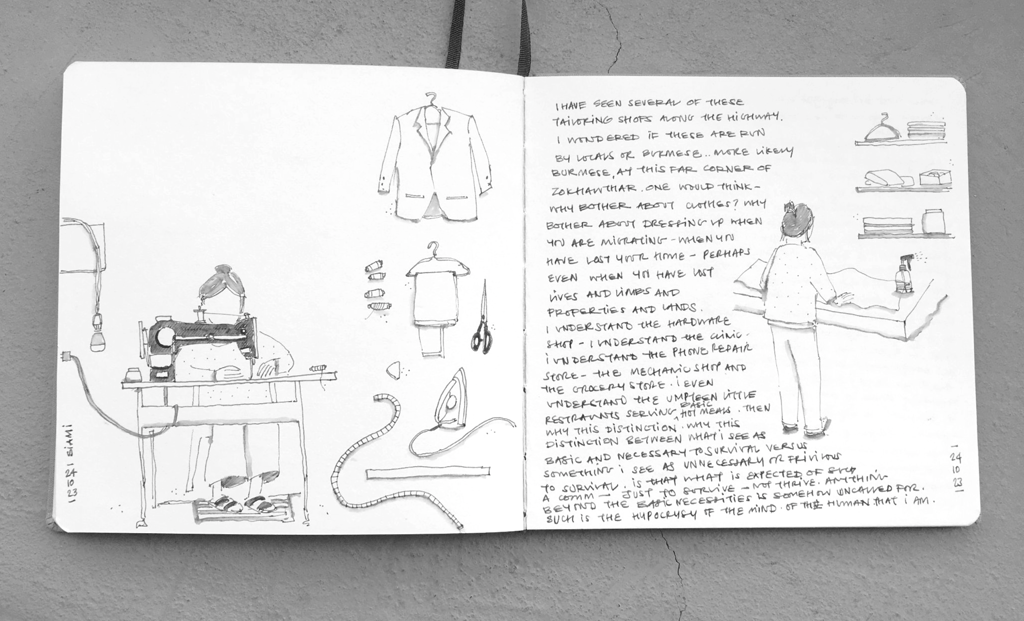 I HAVE SEEN SEVERAL OF THESE
TAILORING SHOPS ALONG THE HIGHWAY.
I WONDERED IF THESE ARE RUN
BY LOCALS OR BURMESE.. MORE LIKELY
BURMESE, AT THIS FAR CORNER OF
ZOKHAWTHAR. ONE WOULD THINK -
WHY BOTHER ABOUT CLOTHES? WHY
BOTHER ABOUT DRESSING UP WHEN
YOU ARE MIGRATING - WHEN YOU
HAVE LOST YOUR HOME - PERHAPS
EVEN WHEN YOU HAVE LOST
LIVES AND LIMBS AND
PROPERTIES AND LANDS.
I UNDERSTAND THE HARDWARE
SHOP - I UNDERSTAND THE CLINIC.
I UNDERSTAND THE PHONE REPAIR
STORE - THE MECHANIC SHOP AND
THE GROCERY STORE. I EVEN
UNDERSTAND THE UMPTEEN LITTLE
RESTRAUNTS SERVING BASIC HOT MEALS. THEN
WHY THIS DISTINCTION. WHY THIS
DISTINCTION BETWEEN WHAT I SEE AS
BASIC AND NECESSARY TO SURVIVAL VERSUS
SOMETHING I SEE AS UNNECESSARY OR
TO SURVIVAL. IS THAT WHAT IS EXPECTED OF SUCH
A COMM - JUST TO SURVIVE - NOT THRIVE. ANYTHING
BEYOND THE BASIC NECESSITIES IS SOMEHOW UNCALLED FOR.
SUCH IS THE HYPOCRISY OF THE MIND. OF THE HUMAN THAT I AM.
24
10
23
23 10 24 | SIAMI